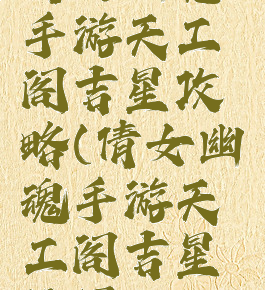 手游天工
阁吉星攻
略(倩女幽
魂手游天
工阁吉星